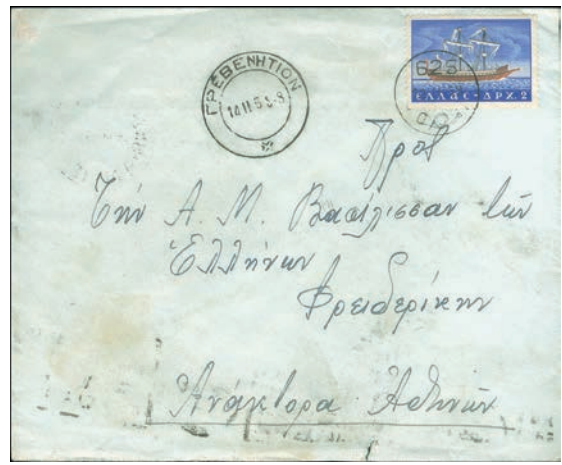 ΓΡΕΒΕΝΗΤΙΟΝ
625
ΕΛΛΑΣ·ΔΡΧ.2
Πρός
Τήν Α. Μ. Βασίλισσαν τῶν
Ἑλλήνων
Φρειδερίκην
Ἀνάκτορα Ἀθηνῶν